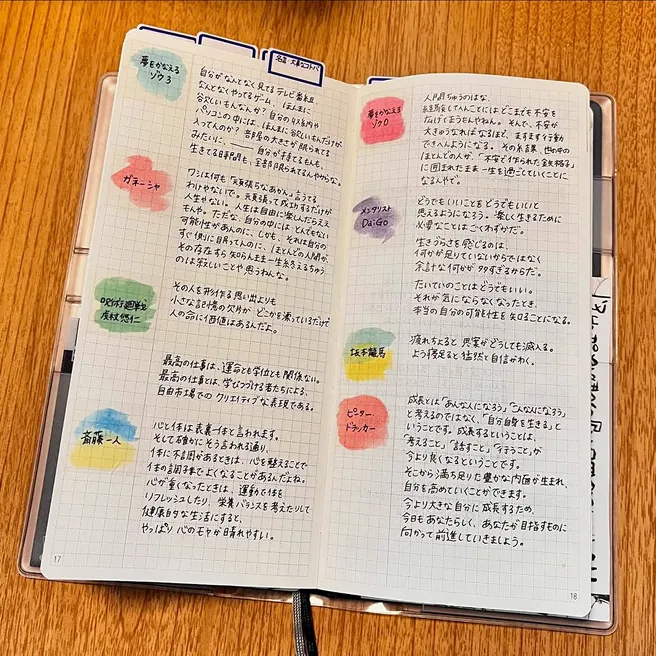 名言・大事なコトバ
夢をかなえる
ゾウ3
自分がなんとなく見てるテレビ番組、
なんとなくやってるゲーム、ほんまに
欲しいもんなんか？自分の収納や
パソコンの中には、ほんまに欲しいもんだけが
入ってんのか？部屋の大きさが限られてる
みたいに、――自分が持てるもんも、
生きてる時間も、全部限られてるんやからな。
ガネーシャ
ワシは何も「頑張らなあかん。」言うてる
わけやないで。頑張って成功するだけが
人生やない。人生は自由に楽しんだらええ
もんや。ただな、自分の中には とんでもない
可能性があんのに、しかも、それは自分の
すぐ側に眠ってんのに、ほとんどの人間が、
その存在すら知らんまま一生を終えるちゅう
のは寂しいことや思うんな。
呪術廻戦
虎杖悠仁
その人を形作る思い出よりも
小さな記憶の欠片が どこかを漂っているだけで
人の命に価値はあるんだよ。
最高の仕事は、運命とも学位とも関係ない。
最高の仕事とは、学びつづける者たちによる、
自由市場での クリエイティブな表現である。
斎藤一人
心と体は表裏一体と言われます。
そして確かにそう言われる通り、
体に不調があるときは、心を整えることで
体の調子までよくなることがあるんだよね。
心が重くなったときは、運動で体を
リフレッシュしたり、栄養バランスを考えたりして
健康的な生活にすると、
やっぱり心のモヤが晴れやすい。
17
夢をかなえる
ゾウ0
人間ちゅうのはな、
経験してへんことにはどこまでも不安を
広げてまうもんやねん。そんで、不安が
大きゅうなればなるほど、ますます行動
できへんようになる。その結果、世の中の
ほとんどの人が、「不安で作られた鉄格子」
に囲まれたまま一生を過ごしていくことに
なるんやで。
メンタリスト
DaiGo
どうでもいいことをどうでもいいと
思えるようになろう。楽しく生きるために
必要なことはごくわずかだ。
生きづらさを感じるのは、
何かが足りていないからではなく
余計な何かが多すぎるからだ。
たいていのことはどうでもいい。
それが気にならなくなったとき、
本当の自分の可能性を知ることになる。
坂本龍馬
疲れちょると思案がどうしても滅入る。
よう寝足ると猛然と自信がわく。
ピーター・
ドラッカー
成長とは「あんな人になろう」「こんな人になろう」
と考えるのではなく、「自分自身を生きる」と
いうことです。成長するということは、
「考えること」「話すこと」「行うこと」が
今より良くなるということです。
そこから満ち足りた豊かな内面が生まれ、
自分を高めていくことができます。
今より大きな自分に成長するため、
今日もあなたらしく、あなたが目指すものに
向かって前進していきましょう。
18